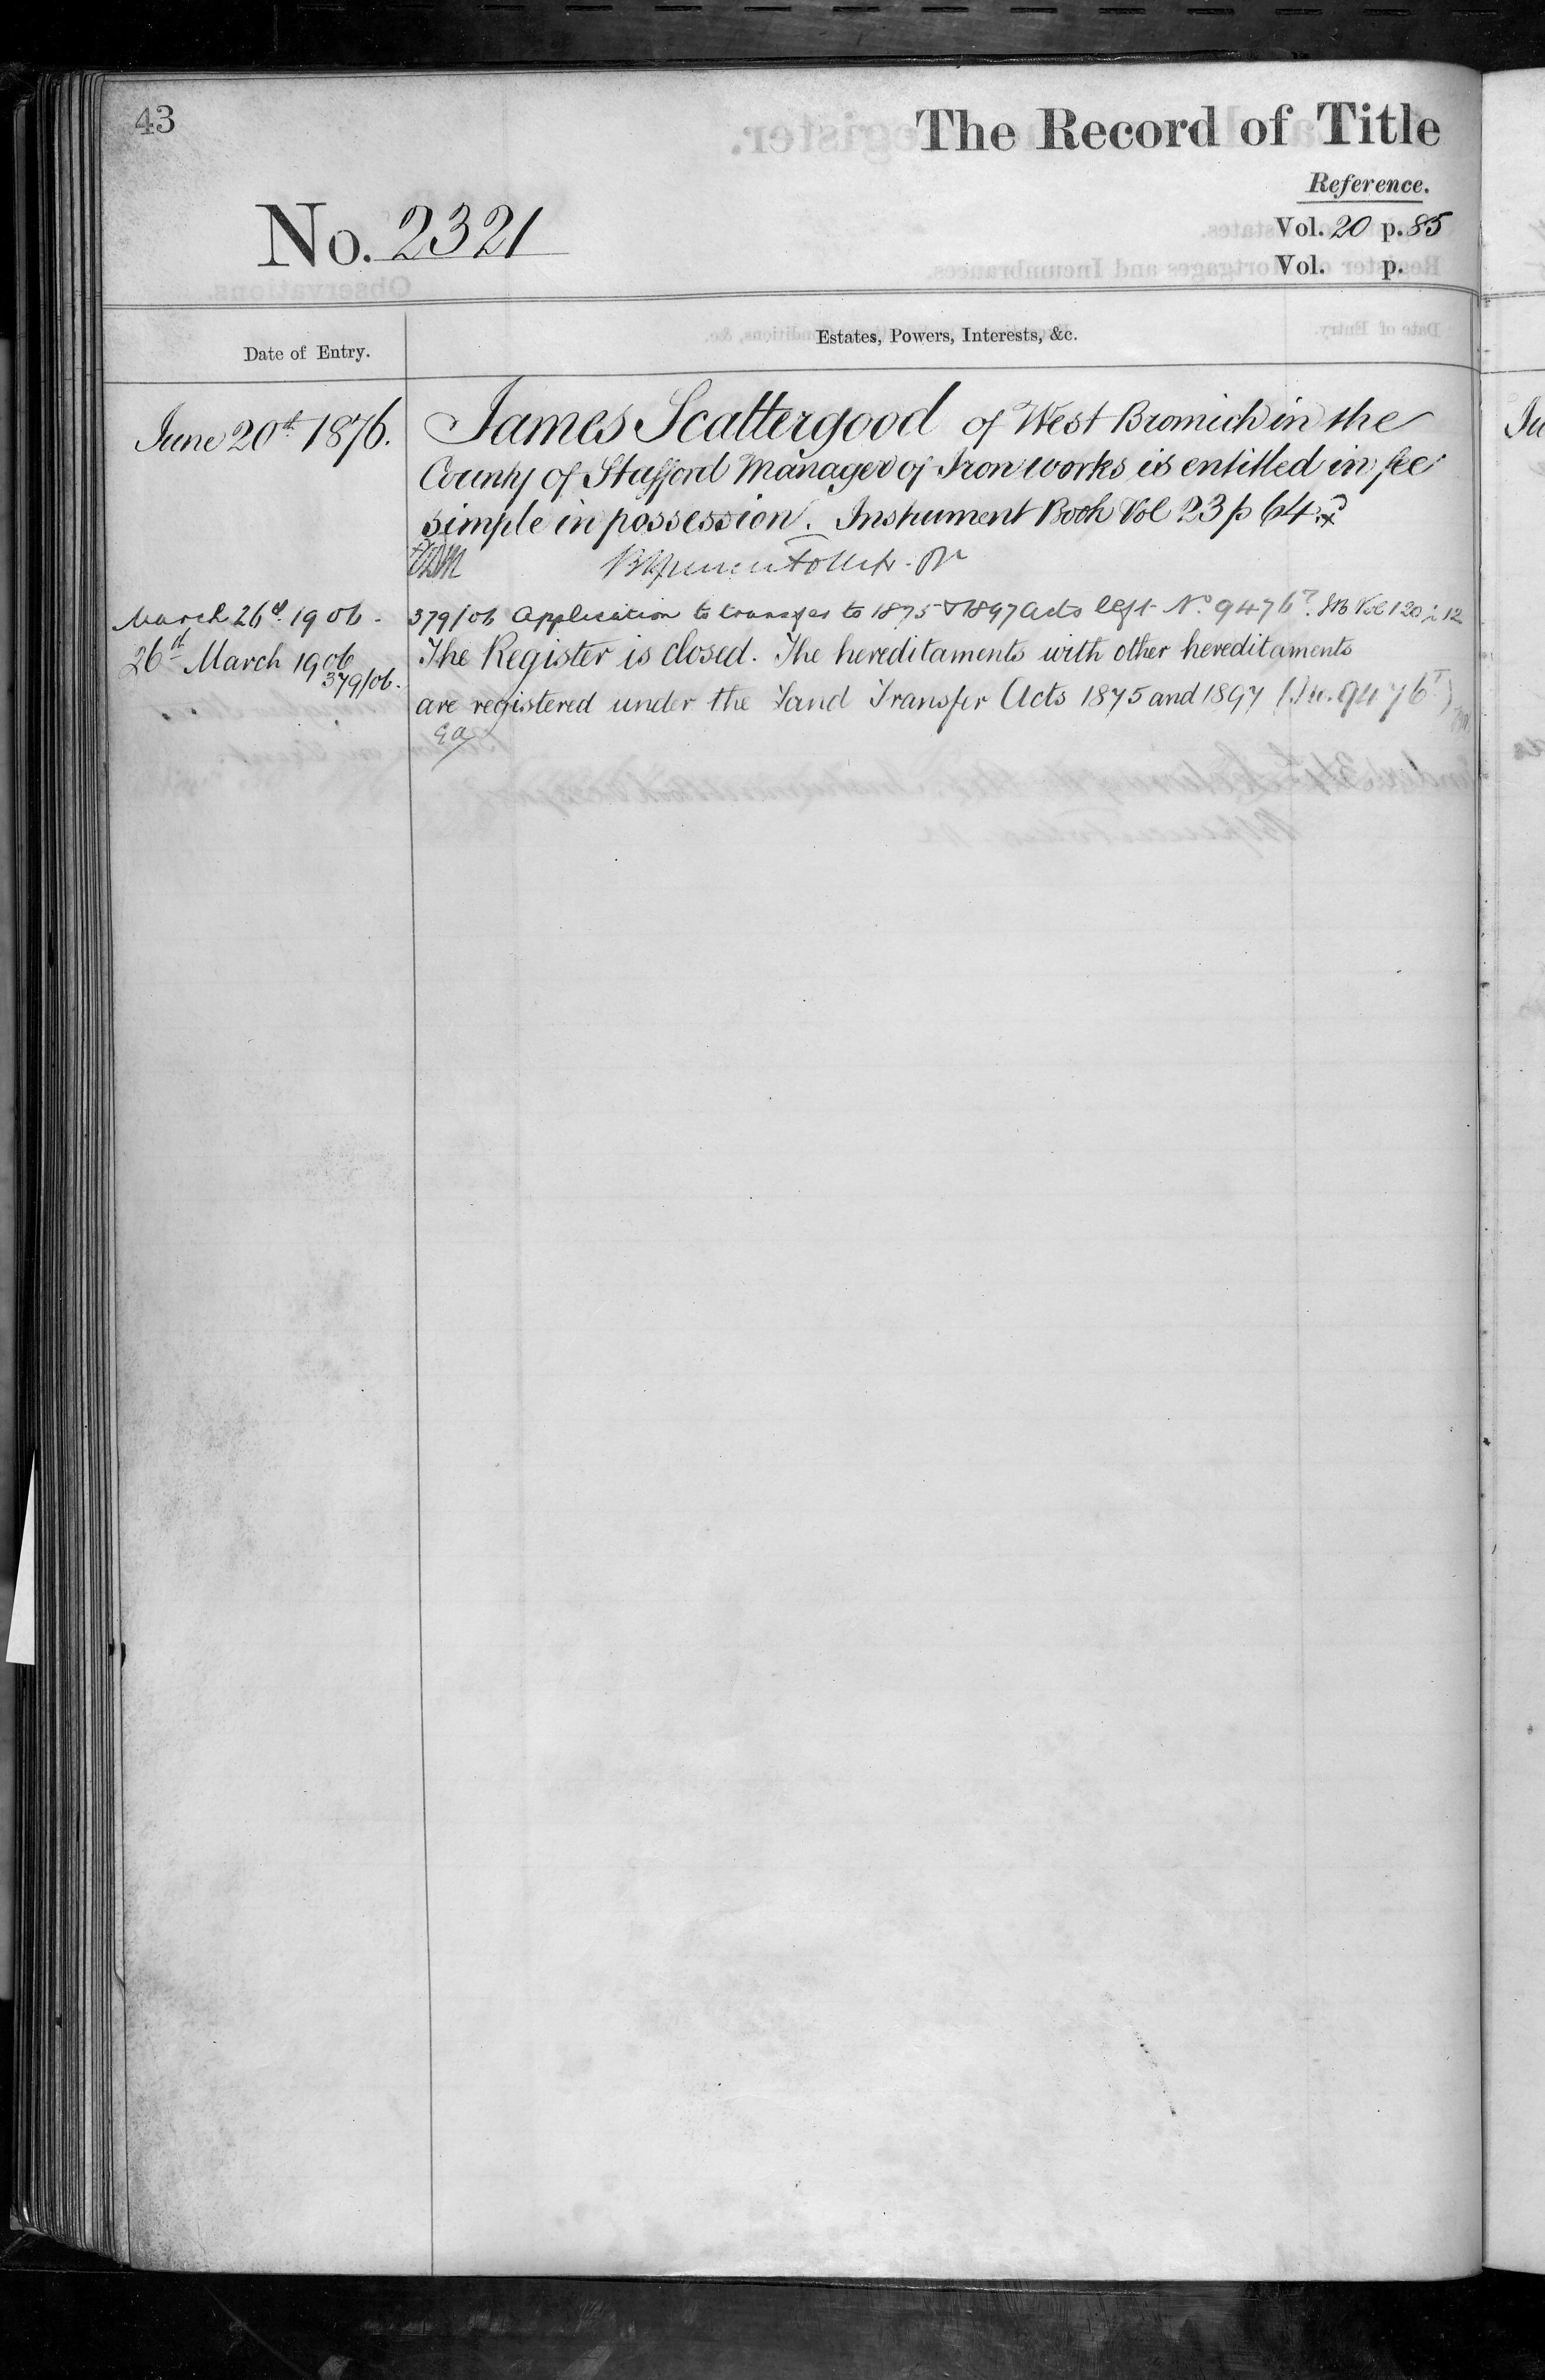 43
The Record of Title
Reference.
No. 2321
Vol. 20 p. 85
Vol. p.
Date of Entry.
Estates, Powers, Interests, &c.
June 20th 1876.
James Scattergood of West Bromich in the
County of Stafford Manager of Iron works is entitled in fee
simple in possession. Instrument Book Vol 23 p 64.
March 26th 1906.
379/06 Application to transfer to 1875 & 1897 Acts left No 9476T. IB Vol 120 p 12
26th March 1906
379/06.
The Register is closed. The hereditaments with other hereditaments
are registered under the Land Transfer Acts 1875 and 1897 (No. 9476T)